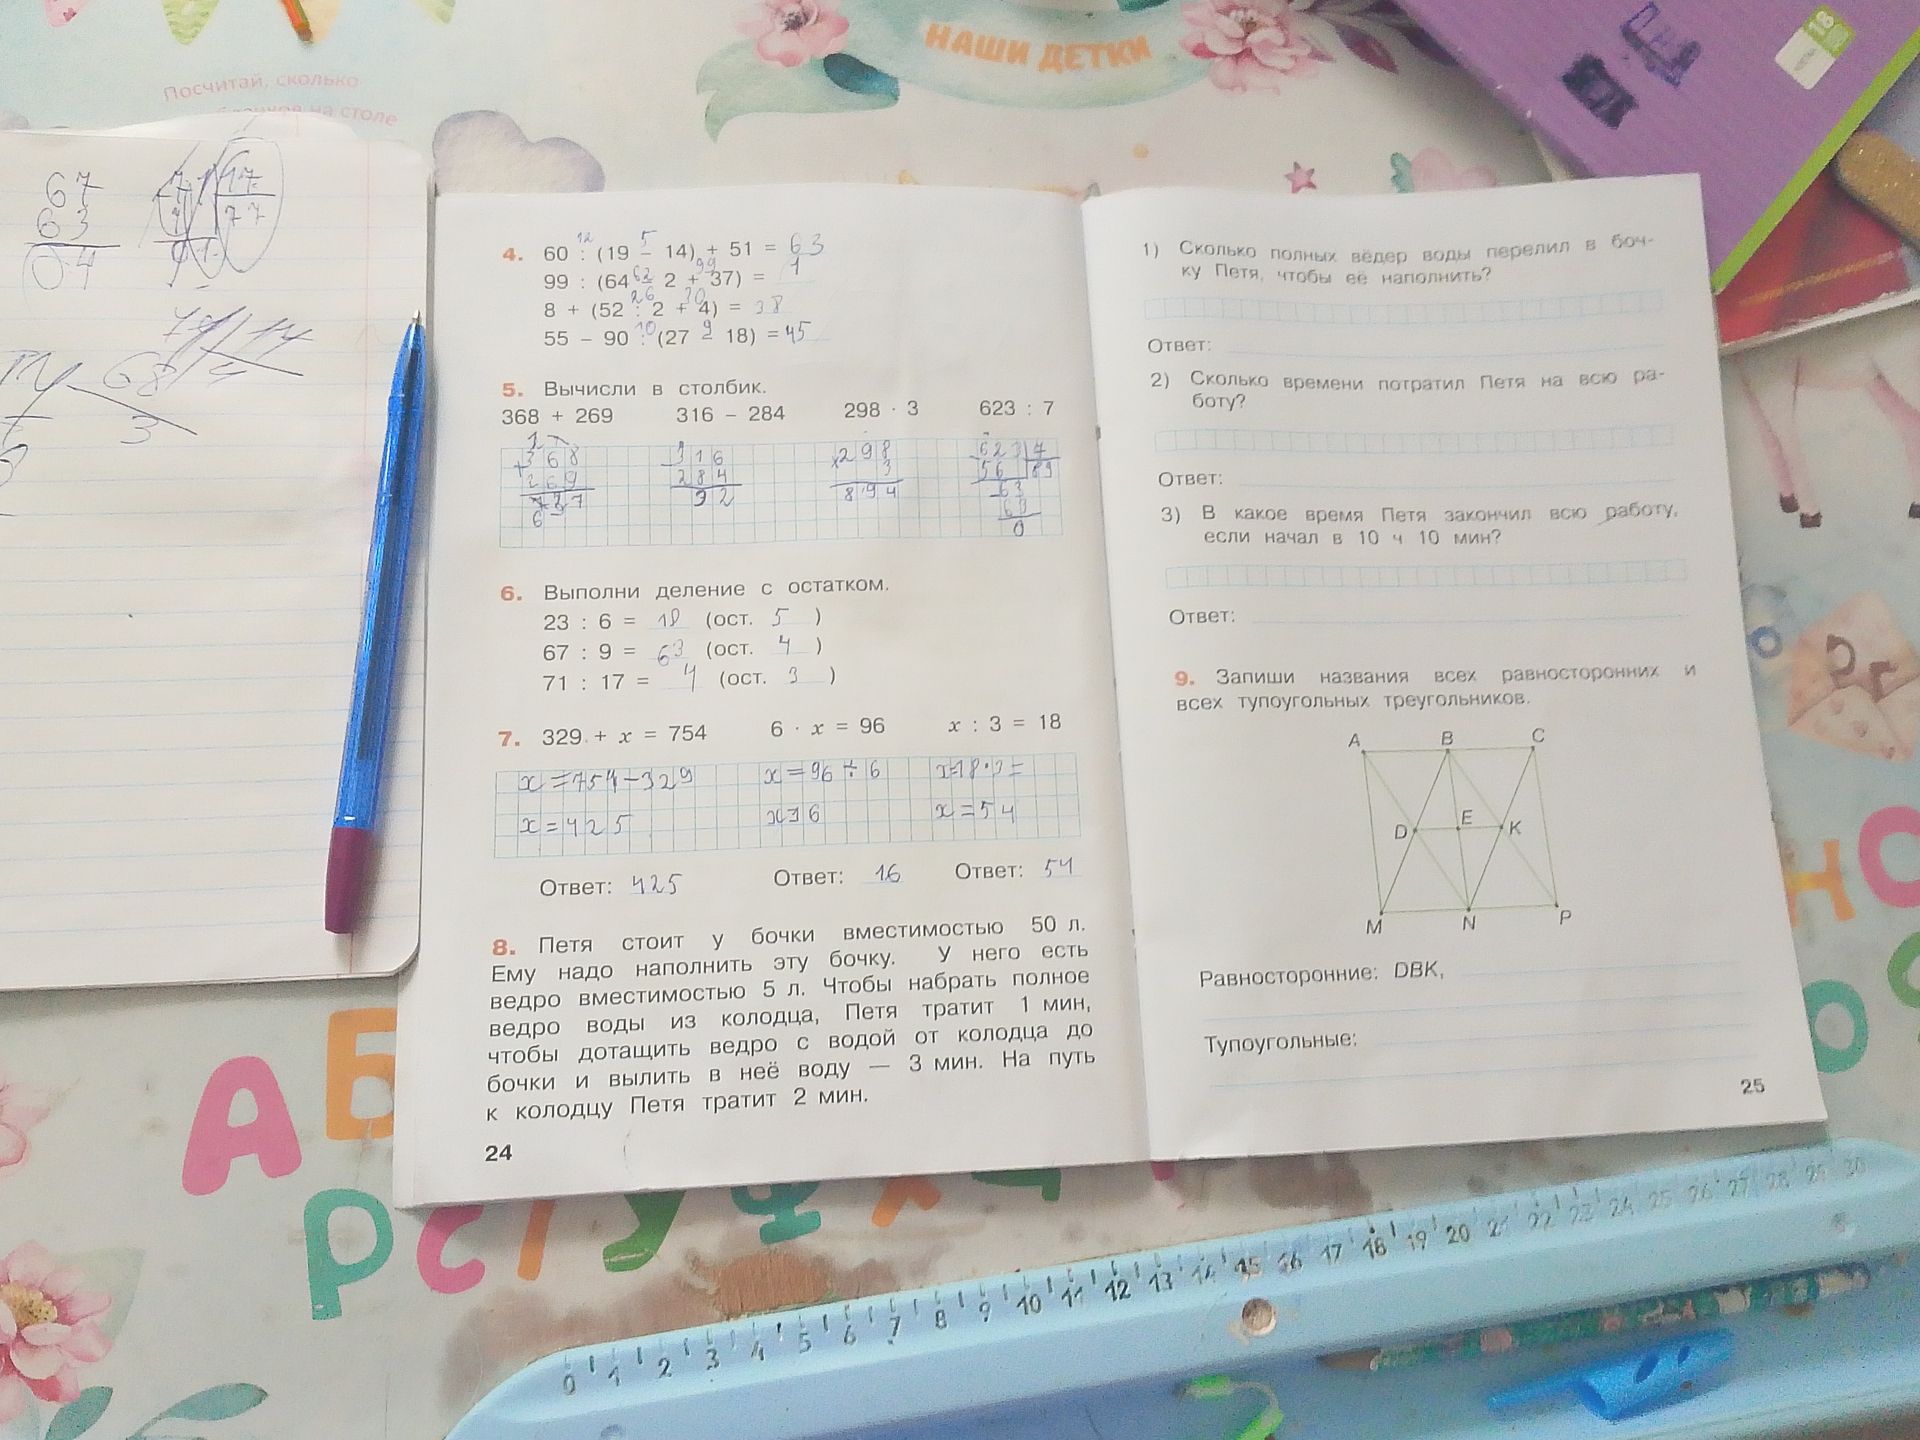 НАШИ ДЕТКИ
Посчитай, сколько
на столе
67
63
04
4. 60 : (19 – 14) + 51 = 63
12 5
99 : (64 – 2 + 37) = 1
62 99
8 + (52 : 2 + 4) = 38
26 30
55 – 90 : (27 – 18) = 45
10 9
5. Вычисли в столбик.
368 + 269 316 – 284 298 · 3 623 : 7
368 316 298 623 7
269 284 3 56 89
637 32 894 63
63
0
6. Выполни деление с остатком.
23 : 6 = 18 (ост. 5 )
67 : 9 = 63 (ост. 4 )
71 : 17 = 4 (ост. 3 )
7. 329 + x = 754 6 · x = 96 x : 3 = 18
x = 754 – 329 x = 96 ÷ 6 x=18·3=
x = 425 x=16 x = 54
Ответ: 425 Ответ: 16 Ответ: 54
8. Петя стоит у бочки вместимостью 50 л.
Ему надо наполнить эту бочку. У него есть
ведро вместимостью 5 л. Чтобы набрать полное
ведро воды из колодца, Петя тратит 1 мин,
чтобы дотащить ведро с водой от колодца до
бочки и вылить в неё воду — 3 мин. На путь
к колодцу Петя тратит 2 мин.
24
1) Сколько полных вёдер воды перелил в боч-
ку Петя, чтобы её наполнить?
Ответ:
2) Сколько времени потратил Петя на всю ра-
боту?
Ответ:
3) В какое время Петя закончил всю работу,
если начал в 10 ч 10 мин?
Ответ:
9. Запиши названия всех равносторонних и
всех тупоугольных треугольников.
A B C
D E K
M N P
Равносторонние: DBK,
Тупоугольные:
25
А Б
Р С Т У Ф Х Ч
0 1 2 3 4 5 6 7 8 9 10 11 12 13 14 15 16 17 18 19 20 21 22 23 24 25 26 27 28 29 30